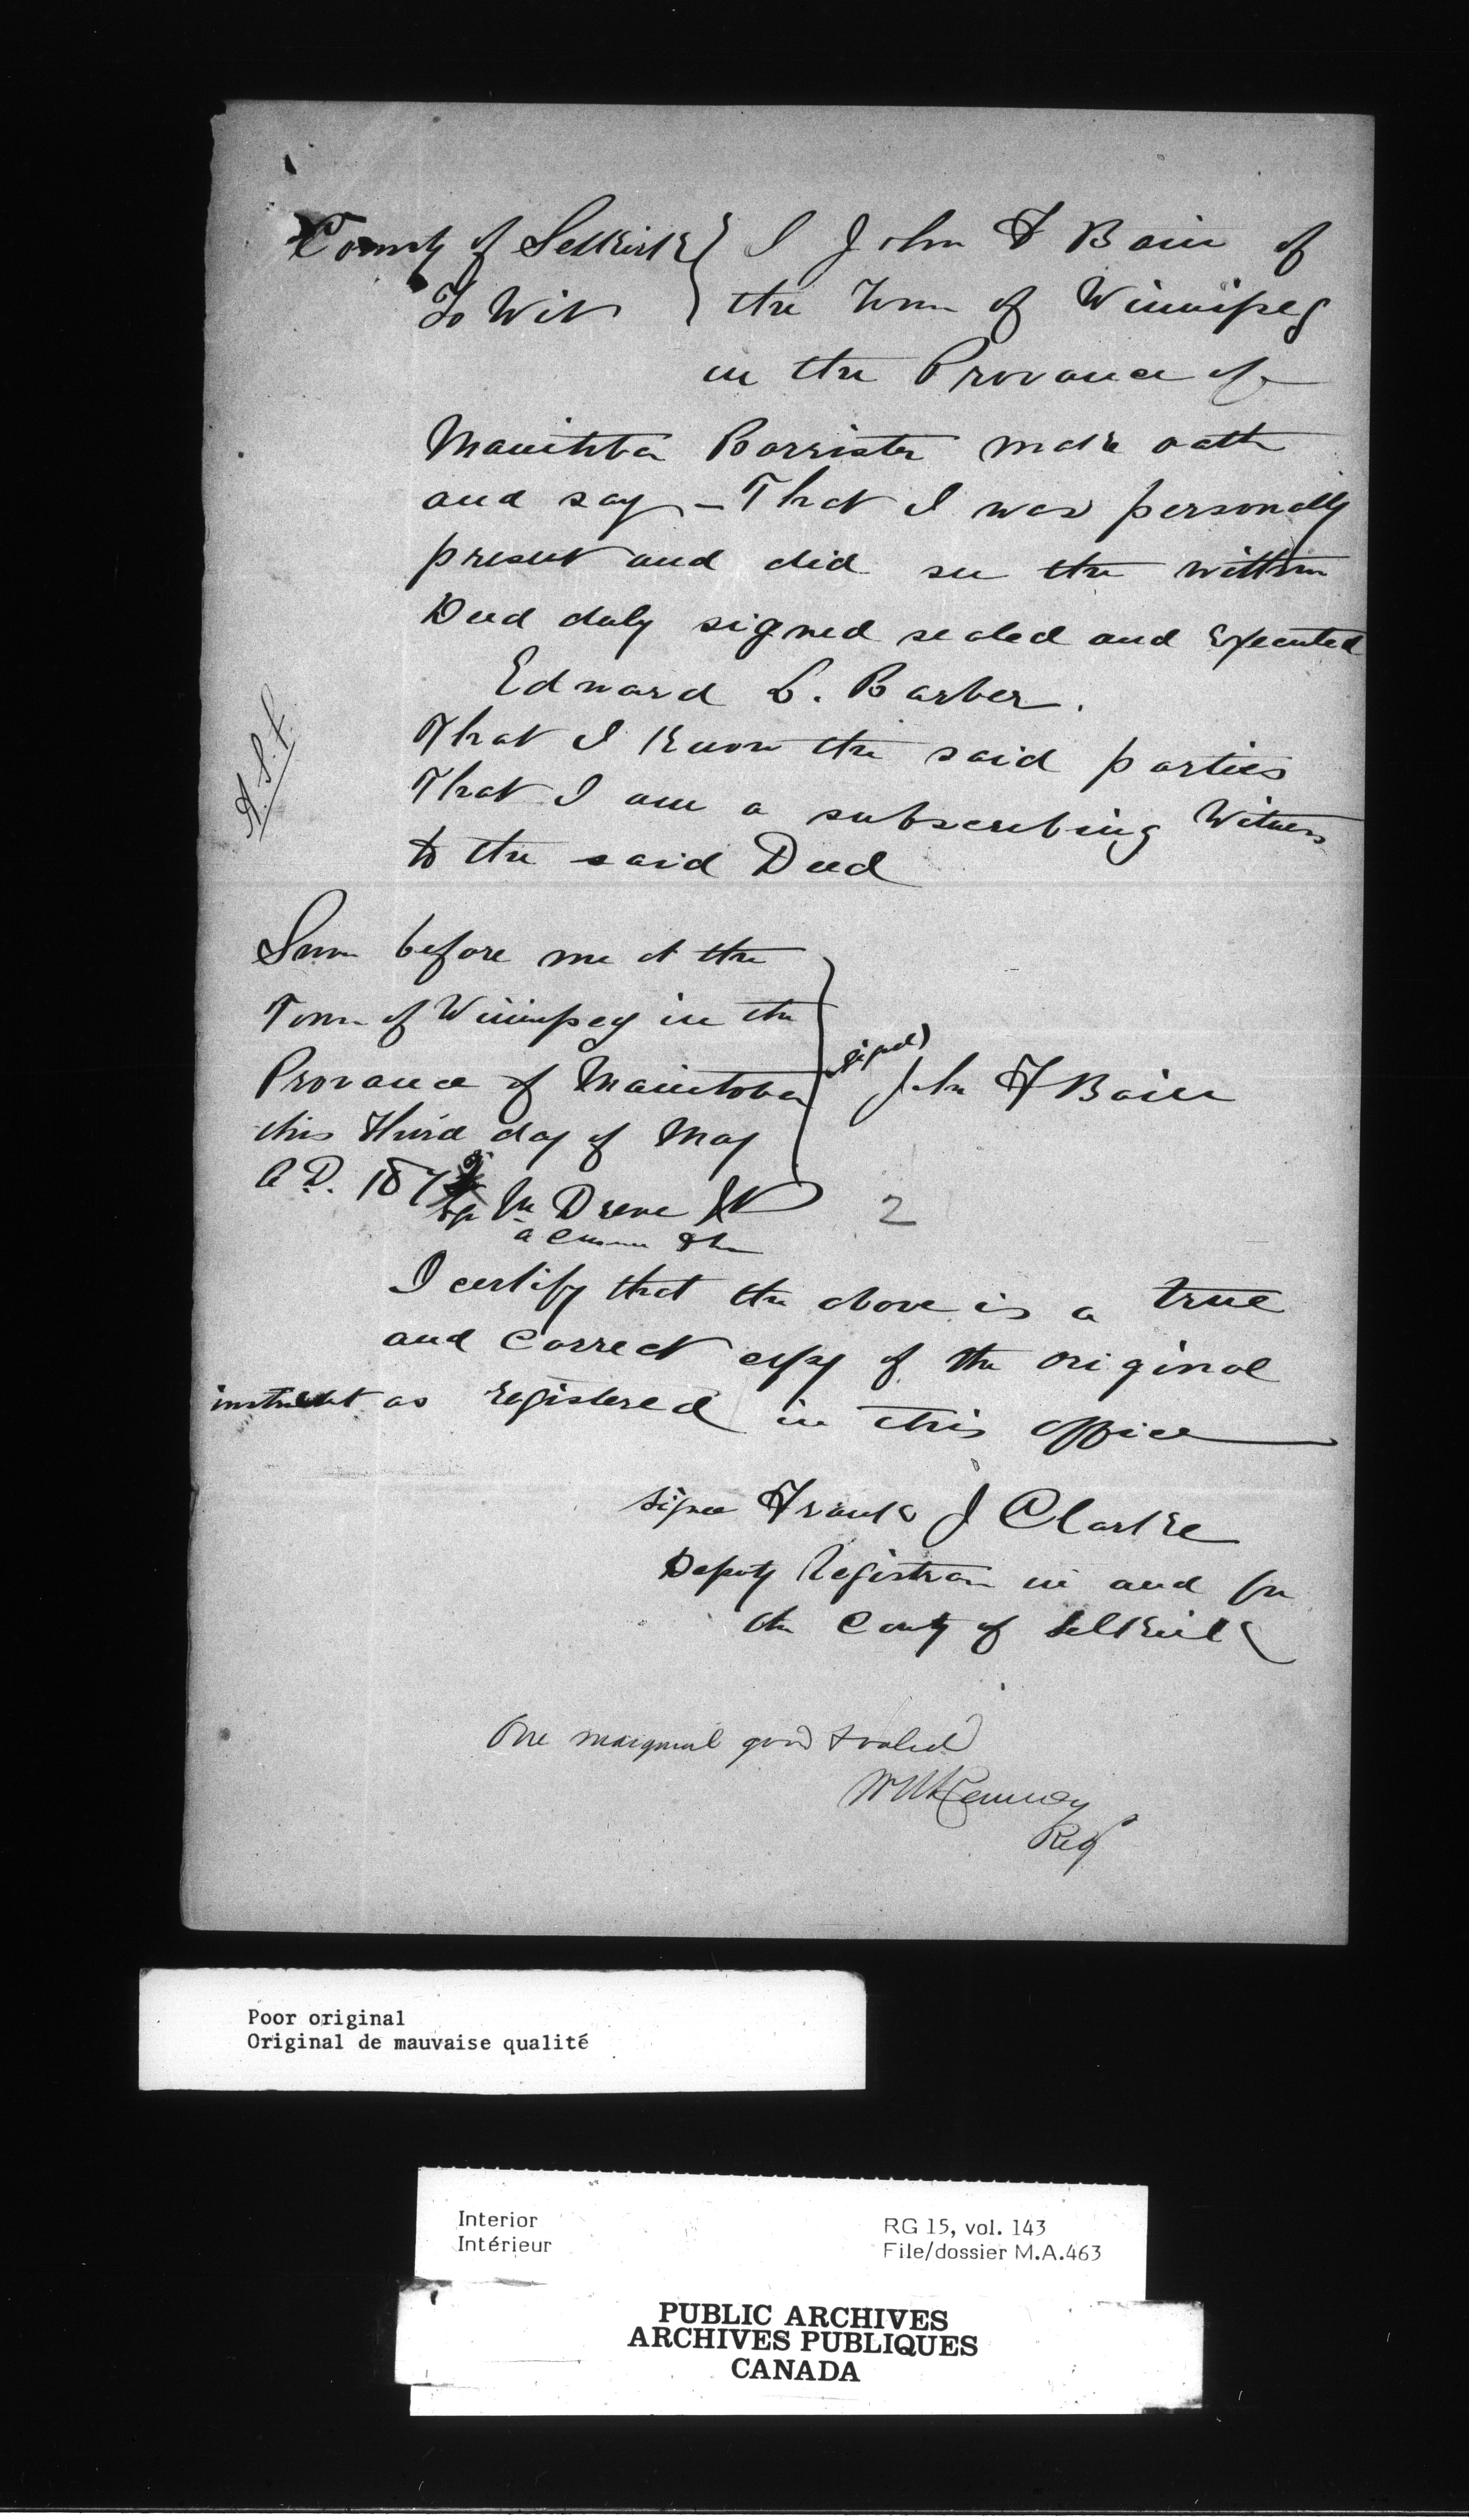 County of Selkirk } I John F Bain of
To Wit } the Town of Winnipeg
in the Provance of
Manitoba Barrister make oath
and say - That I was personally
present and did see the within
Deed duly signed sealed and Executed
Edward L. Barber.
That I Know the said parties
That I am a subscribing Witness
to the said Deed
Sworn before me at the
Town of Winnipeg in the
Provance of Manitoba
this Third day of May
A.D. 187
(signed) John F Bain
2
I certify that the above is a true
and Correct copy of the original
instrument as registered in this office
signed Frank J Clarke
Deputy Registrar in and for
the County of Selkirk
One marginal good & valid
W McKenney
Reg
Poor original
Original de mauvaise qualité
Interior
Intérieur
RG 15, vol. 143
File/dossier M.A.463
PUBLIC ARCHIVES
ARCHIVES PUBLIQUES
CANADA